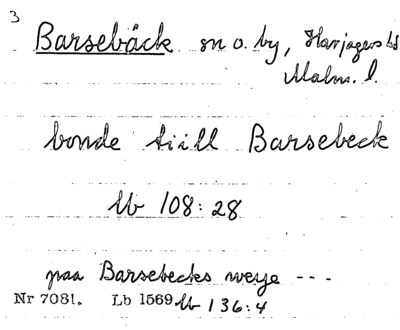 3
Barsebäck sn o. by, Harjagers hd
Malm. l.
bonde tiill Barsebeck
Lb 108:28
paa Barsebecks weye ---
Nr 7081. Lb 1569 Lb 136:4